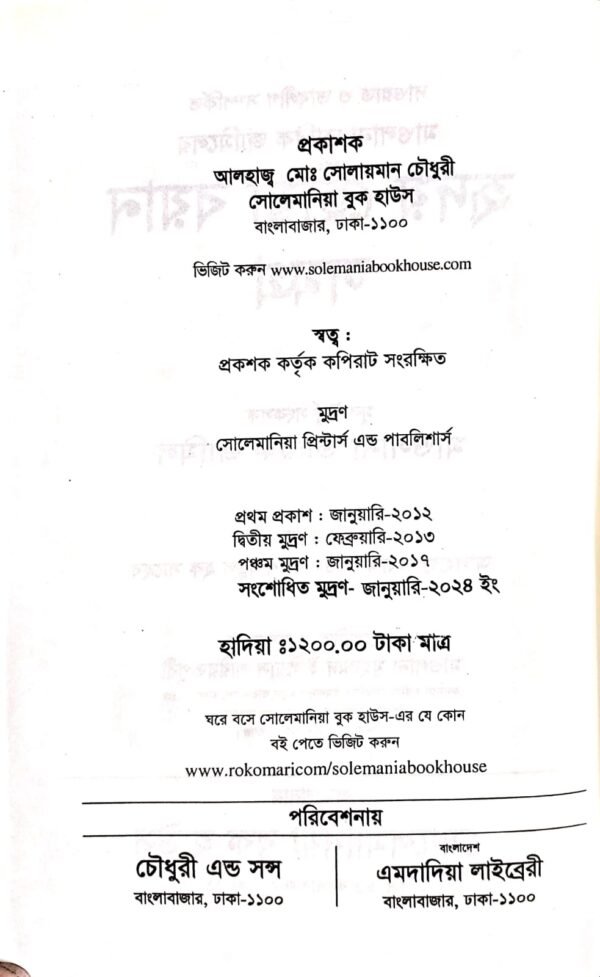 প্রকাশক
আলহাজ্ব মোঃ সোলায়মান চৌধুরী
সোলেমানিয়া বুক হাউস
বাংলাবাজার, ঢাকা-১১০০
ভিজিট করুন www.solemaniabookhouse.com
স্বত্ব :
প্রকশক কর্তৃক কপিরাট সংরক্ষিত
মুদ্রণ
সোলেমানিয়া প্রিন্টার্স এন্ড পাবলিশার্স
প্রথম প্রকাশ : জানুয়ারি-২০১২
দ্বিতীয় মুদ্রণ : ফেব্রুয়ারি-২০১৩
পঞ্চম মুদ্রণ : জানুয়ারি-২০১৭
সংশোধিত মুদ্রণ- জানুয়ারি-২০২৪ ইং
হাদিয়া ঃ১২০০.০০ টাকা মাত্র
ঘরে বসে সোলেমানিয়া বুক হাউস-এর যে কোন
বই পেতে ভিজিট করুন
www.rokomaricom/solemaniabookhouse
পরিবেশনায়
চৌধুরী এন্ড সন্স
বাংলাবাজার, ঢাকা-১১০০
বাংলাদেশ
এমদাদিয়া লাইব্রেরী
বাংলাবাজার, ঢাকা-১১০০